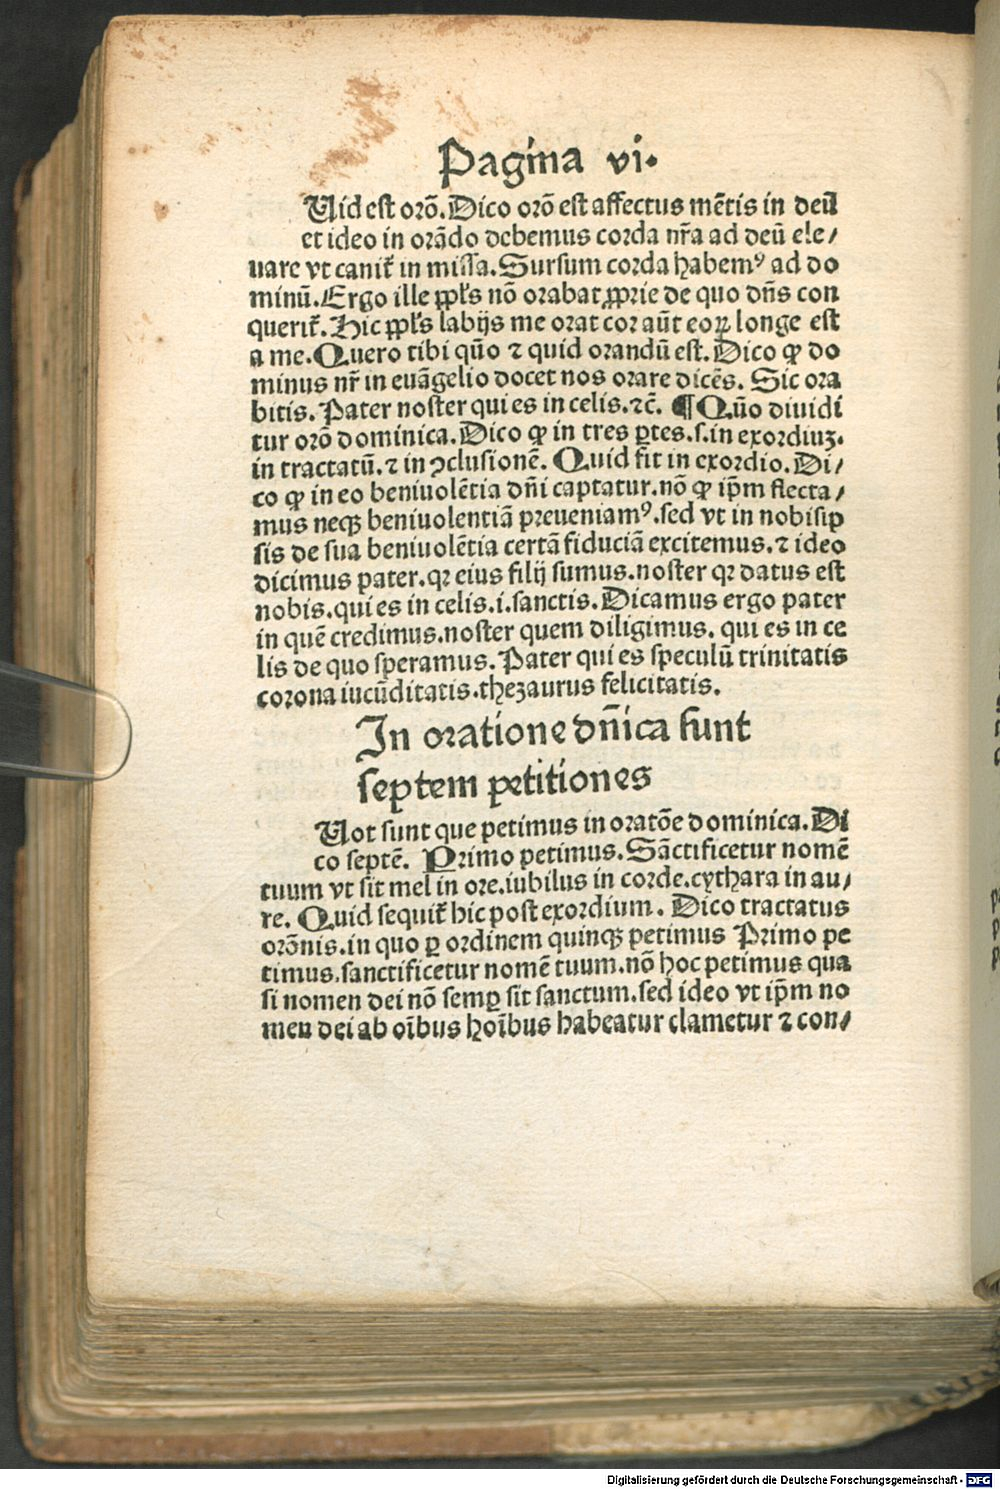 Pagina vi.
Uid est orō. Dico orō est affectus mētis in deū
et ideo in orādo debemus corda nr̄a ad deū ele/
uare vt canit̄ in missa. Sursum corda habemꝰ ad do
minū. Ergo ille ppl̄s nō orabat ꝓprie de quo dn̄s con
querit̄. Hic ppl̄s labijs me orat cor aūt eoꝝ longe est
a me. Quero tibi qūo ⁊ quid orandū est. Dico ꝙ do
minus nr̄ in euāgelio docet nos orare dicēs. Sic ora
bitis. Pater noster qui es in celis. ⁊c̄. ¶ Qūo diuidi
tur orō dominica. Dico ꝙ in tres ꝑtes. s. in exordiuꝫ.
in tractatū. ⁊ in ꝯclusionē. Quid fit in exordio. Di/
co ꝙ in eo beniuolētia dn̄i captatur. nō ꝙ ip̄m flecta/
mus neqꝫ beniuolentiā preueniamꝰ. sed vt in nobisip
sis de sua beniuolētia certā fiduciā excitemus. ⁊ ideo
dicimus pater. qꝛ eius filij sumus. noster qꝛ datus est
nobis. qui es in celis. i. sanctis. Dicamus ergo pater
in quē credimus. noster quem diligimus. qui es in ce
lis de quo speramus. Pater qui es speculū trinitatis
corona iucūditatis. thezaurus felicitatis.
In oratione dn̄ica sunt
septem petitiones
Uot sunt que petimus in oratōe dominica. Di
co septē. Primo petimus. Sāctificetur nomē
tuum vt sit mel in ore. iubilus in corde. cythara in au/
re. Quid sequit̄ hic post exordium. Dico tractatus
orōnis. in quo ꝑ ordinem quinqꝫ petimus Primo pe
timus. sanctificetur nomē tuum. nō hoc petimus qua
si nomen dei nō semꝑ sit sanctum. sed ideo vt ip̄m no
men dei ab oībus hoībus habeatur clametur ⁊ con/
Digitalisierung gefördert durch die Deutsche Forschungsgemeinschaft - DFG